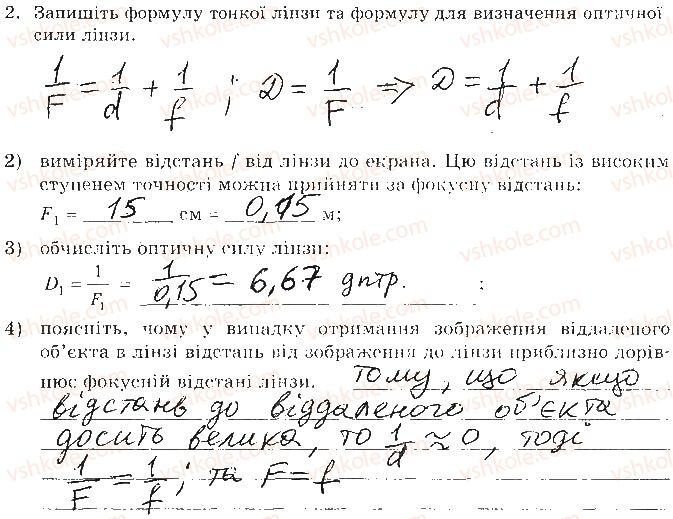 2. Запишіть формулу тонкої лінзи та формулу для визначення оптичної
сили лінзи.
1/F = 1/d + 1/f ; D = 1/F => D = 1/d + 1/f
2) виміряйте відстань f від лінзи до екрана. Цю відстань із високим
ступенем точності можна прийняти за фокусну відстань:
F₁ = 15 см = 0,15 м;
3) обчисліть оптичну силу лінзи:
D₁ = 1/F₁ = 1/0,15 = 6,67 дптр. ;
4) поясніть, чому у випадку отримання зображення віддаленого
об'єкта в лінзі відстань від зображення до лінзи приблизно дорів-
нює фокусній відстані лінзи. Тому, що якщо
відстань до віддаленого об'єкта
досить велика, то 1/d ≈ 0, тоді
1/F = 1/f ; та F = f